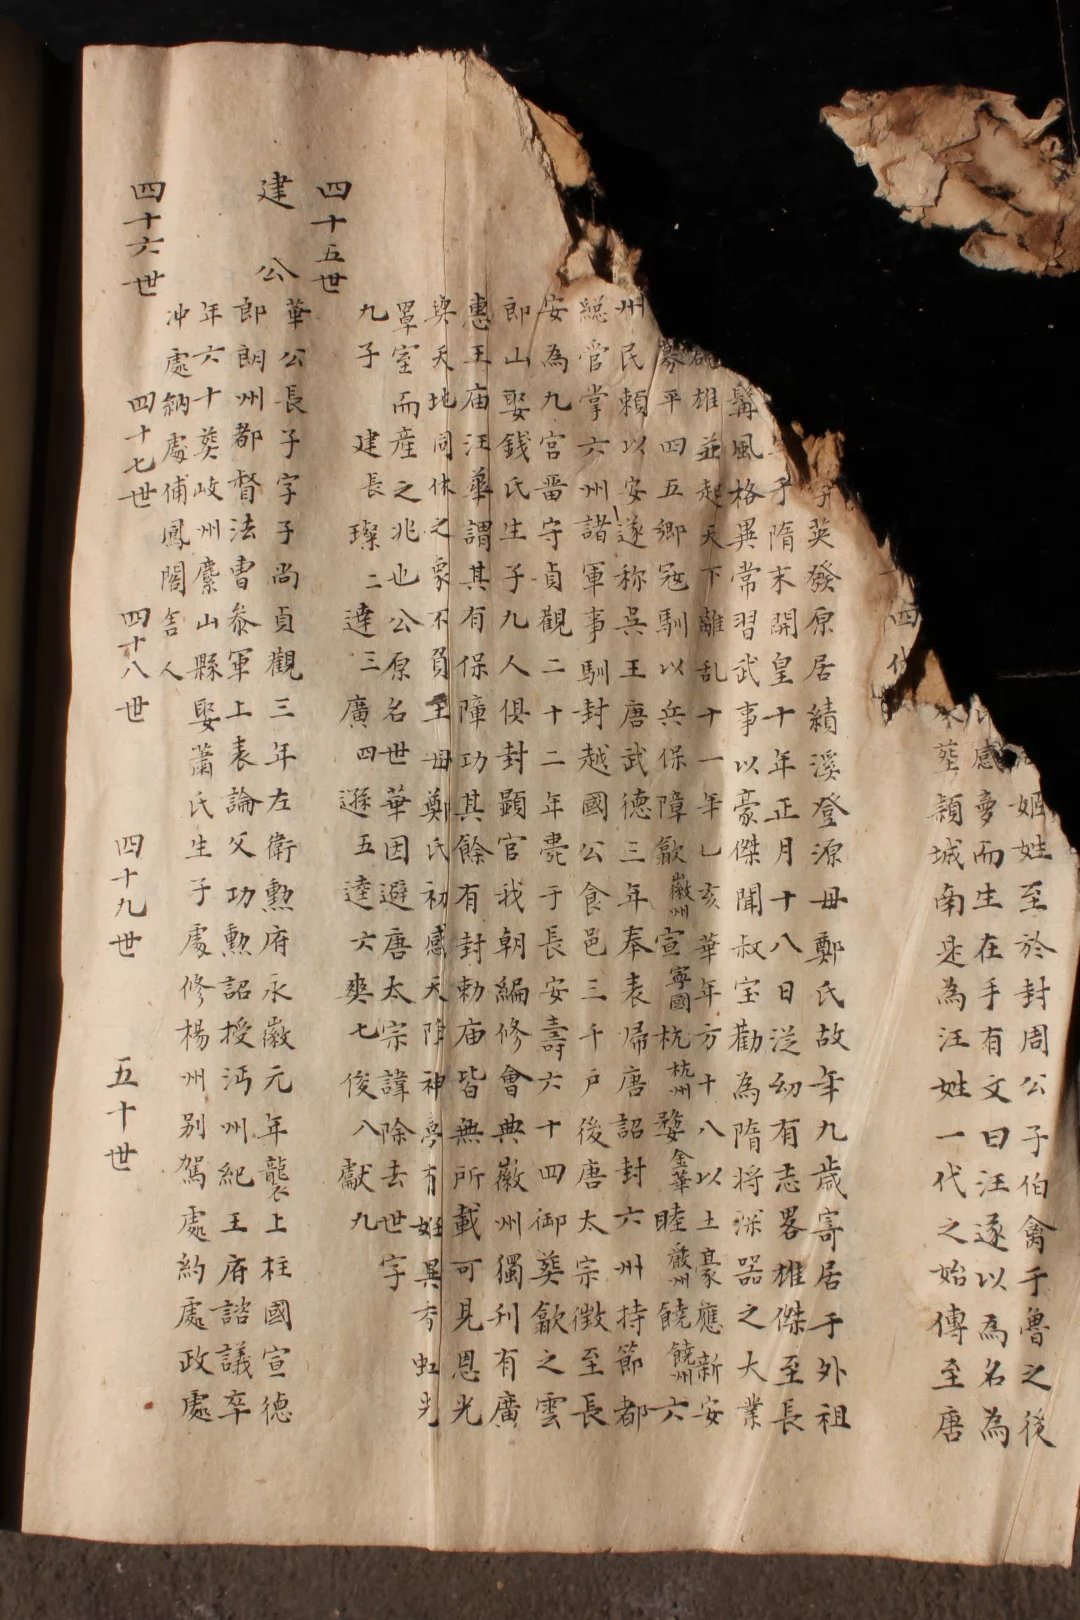 姬姓至於封周公子伯禽于魯之後
感夢而生在手有文曰汪遂以為名為
葬潁城南是為汪姓一代之始傳至唐
四代
子英發原居績溪登源母鄭氏故年九歲寄居于外祖
于隋末開皇十年正月十八日從幼有志畧雄傑至長
髯風格異常習武事以豪傑聞叔宝勸為隋將深器之大業
雄並起天下離乱十一年乙亥華年方十八以土豪應新安
募平四五鄉冦馴以兵保障歙徽州宣寧國杭杭州婺金華睦嚴州饒饒州六
州民賴以安遂称吳王唐武德三年奉表歸唐詔封六州持節都
総管掌六州諸軍事馴封越國公食邑三千戶後唐太宗徴至長
安為九宮畱守貞觀二十二年薨于長安壽六十四御葬歙之雲
郎山娶銭氏生子九人俱封顕官我朝編修會典徽州獨刊有廣
惠王庙汪華謂其有保障功其餘有封勅庙皆無所載可見恩光
與天地同休之衆不負王母鄭氏初感天降神夢有娠異香虹光
罩室而產之兆也公原名世華因避唐太宗諱除去世字
九子 建長 璨二 達三 廣四 遜五 逵六 爽七 俊八 獻九
四十五世
建公
華公長子字子尚貞觀三年左衛勲府永徽元年襲上柱國宣德
郎朗州都督法曹叅軍上表論父功勲詔授沔州紀王府諮議卒
年六十葬岐州麋山縣娶蕭氏生子處修楊州別駕處約處政處
冲處納處俌鳳閣舎人
四十六世 四十七世 四十八世 四十九世 五十世